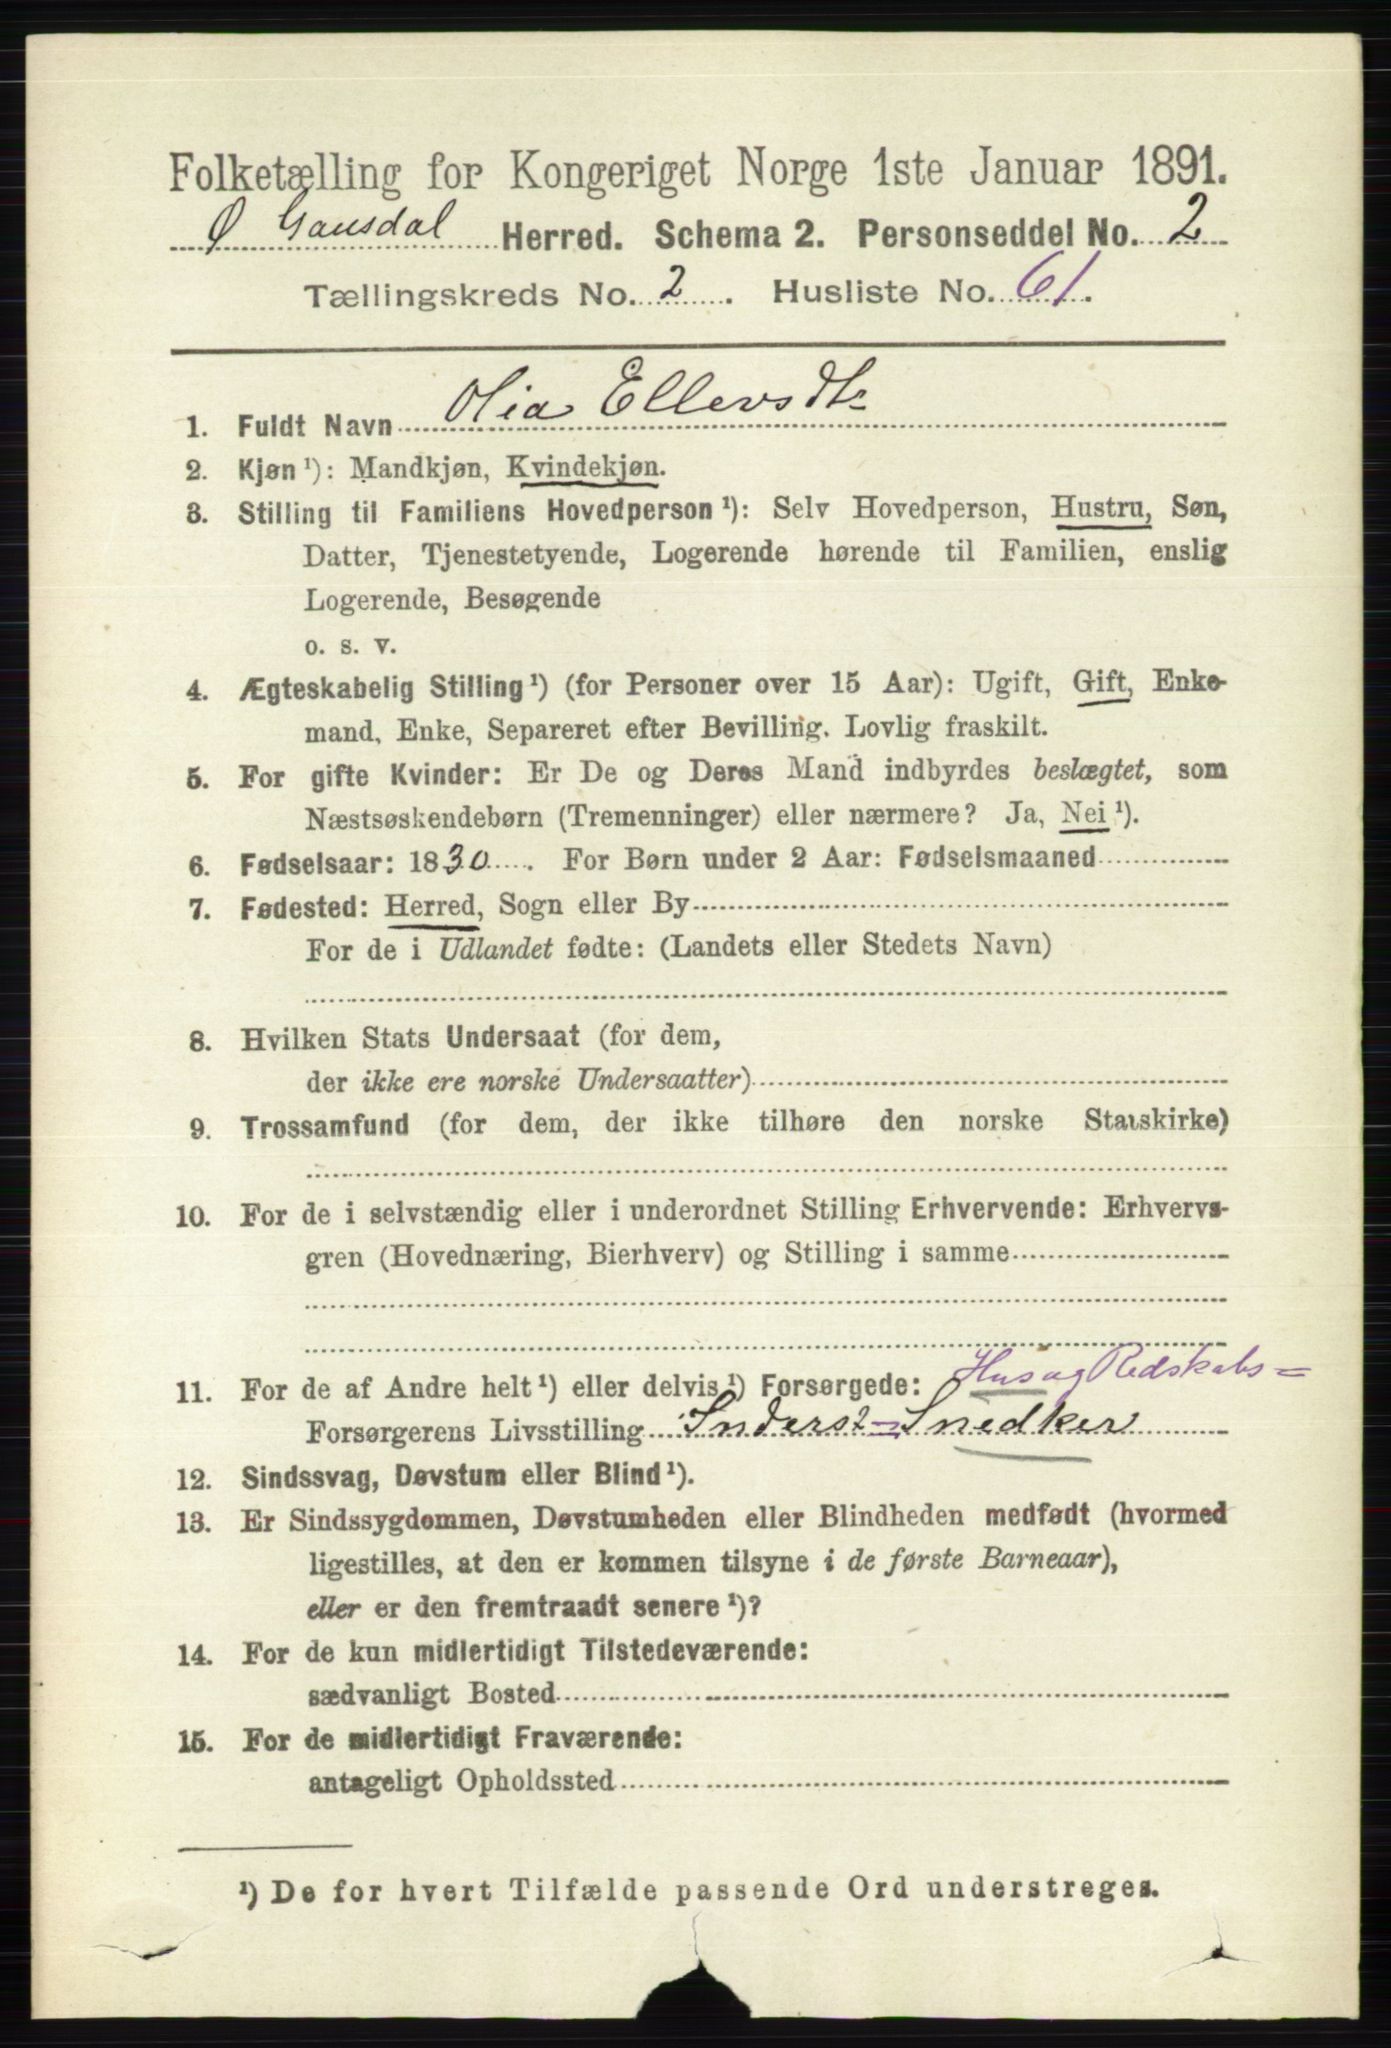 Folketælling for Kongeriget Norge 1ste Januar 1891.
Ø Gausdal Herred. Schema 2. Personseddel No. 2
Tællingskreds No. 2. Husliste No. 61.
1. Fuldt Navn Olia Ellevsdtr
2. Kjøn ¹): Mandkjøn, Kvindekjøn.
3. Stilling til Familiens Hovedperson ¹): Selv Hovedperson, Hustru, Søn,
Datter, Tjenestetyende, Logerende hørende til Familien, enslig
Logerende, Besøgende
o. s. v.
4. Ægteskabelig Stilling ¹) (for Personer over 15 Aar): Ugift, Gift, Enke-
mand, Enke, Separeret efter Bevilling. Lovlig fraskilt.
5. For gifte Kvinder: Er De og Deres Mand indbyrdes beslægtet, som
Næstsøskendebørn (Tremenninger) eller nærmere? Ja, Nei ¹).
6. Fødselsaar: 1830. For Børn under 2 Aar: Fødselsmaaned
7. Fødested: Herred, Sogn eller By
For de i Udlandet fødte: (Landets eller Stedets Navn)
8. Hvilken Stats Undersaat (for dem,
der ikke ere norske Undersaatter)
9. Trossamfund (for dem, der ikke tilhøre den norske Statskirke)
10. For de i selvstændig eller i underordnet Stilling Erhvervende: Erhvervs-
gren (Hovednæring, Bierhverv) og Stilling i samme
11. For de af Andre helt ¹) eller delvis ¹) Forsørgede: Hus og Redskabs=
Forsørgerens Livsstilling Inderst=Snedker
12. Sindssvag, Døvstum eller Blind ¹).
13. Er Sindssygdommen, Døvstumheden eller Blindheden medfødt (hvormed
ligestilles, at den er kommen tilsyne i de første Barneaar),
eller er den fremtraadt senere ¹)?
14. For de kun midlertidigt Tilstedeværende:
sædvanligt Bosted
15. For de midlertidigt Fraværende:
antageligt Opholdssted
¹) De for hvert Tilfælde passende Ord understreges.